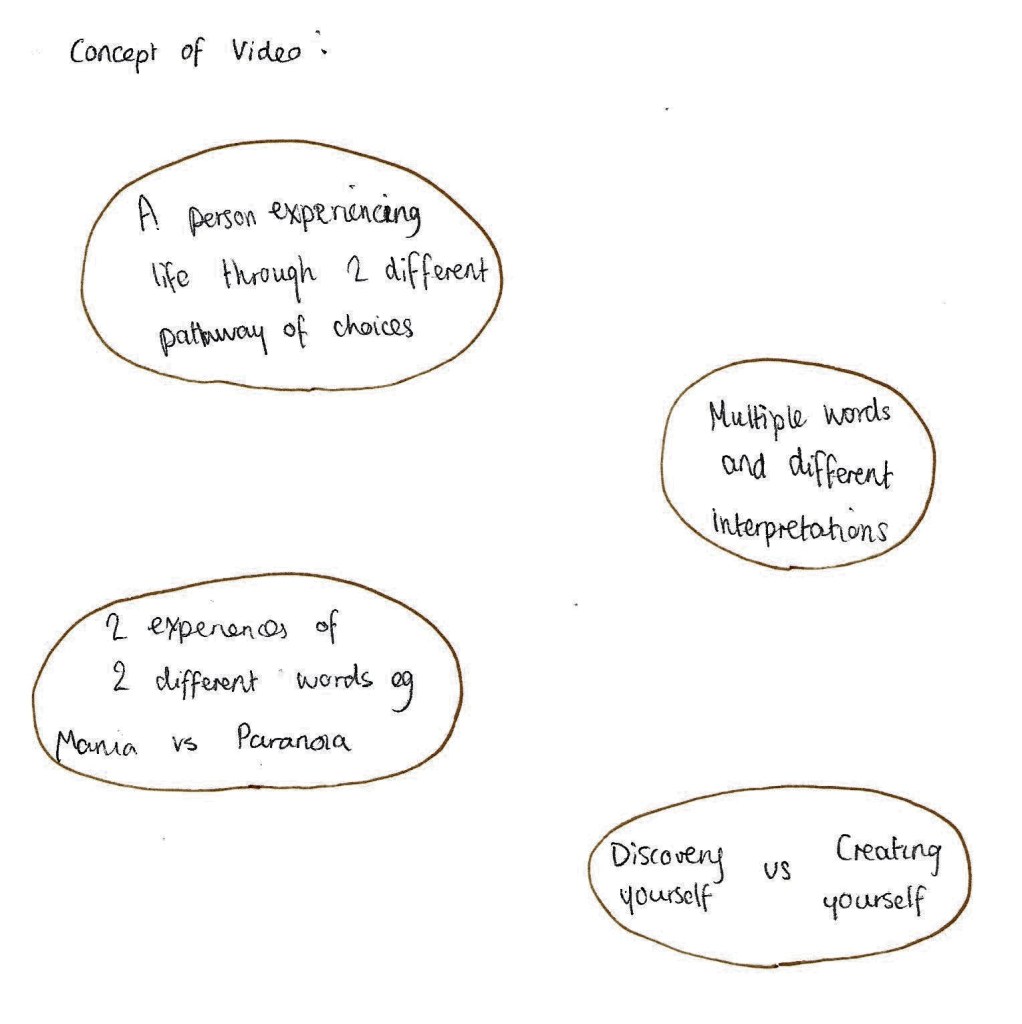 Concept of Video:
A person experiencing
life through 2 different
pathway of choices
Multiple words
and different
interpretations
2 experiences of
2 different words eg
Mania vs Paranoia
Discovery vs Creating
yourself yourself